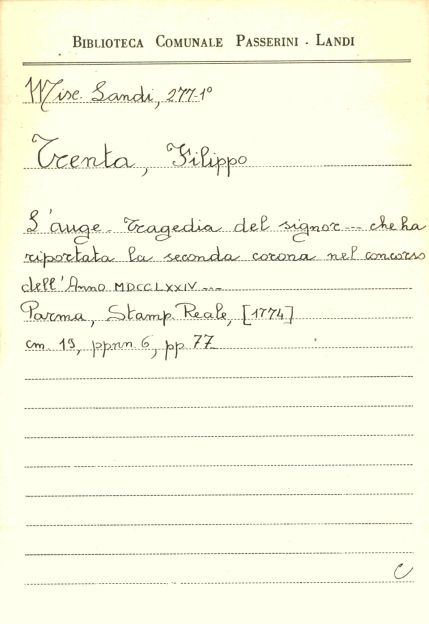 BIBLIOTECA COMUNALE PASSERINI - LANDI
Misc. Landi, 277-1°
Trenta, Filippo
L'auge. Tragedia del signor... che ha
riportata la seconda corona nel concorso
dell'Anno MDCCLXXIV....
Parma, Stamp. Reale, [1774]
cm. 19, ppnn 6, pp. 77
C